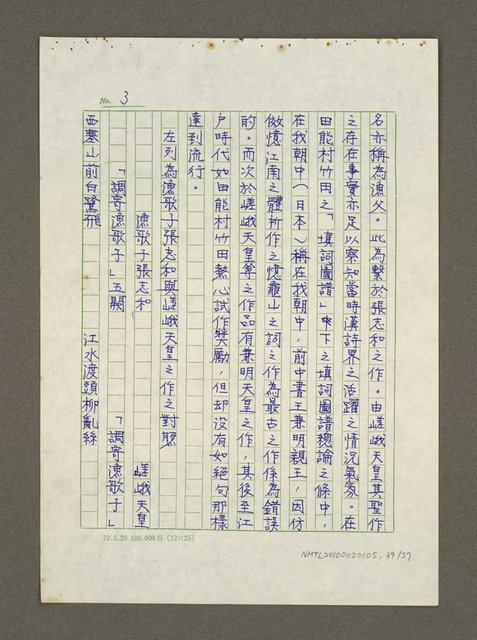 No. 3
名亦稱為漁父。此為繫於張志和之作。由嵯峨天皇其聖作
之存在事實亦足以察知當時漢詩界之活躍之情況氣氛。在
田能村竹田之「填詞圖譜」中下之填詞圖譜總論之條中，
在我朝中（日本）稱在我朝中，前中書王兼明親王，因仿
做憶江南之體所作之憶龜山之詞之作為最古之作係為錯誤
的。而次於嵯峨天皇等之作品有兼明天皇之作，其後至江
戶時代如田能村竹田熱心試作獎勵，但却没有如絕句那樣
達到流行。
左列為漁歌子張志和與嵯峨天皇之作之對照
漁歌子張志和 嵯峨天皇
「調寄漁歌子」五闋 「調寄漁歌子」
西塞山前白鷺飛 江水渡頭柳亂絲
70.3.20 100.000份 (12×25)
NMTL20100020105, 39/57